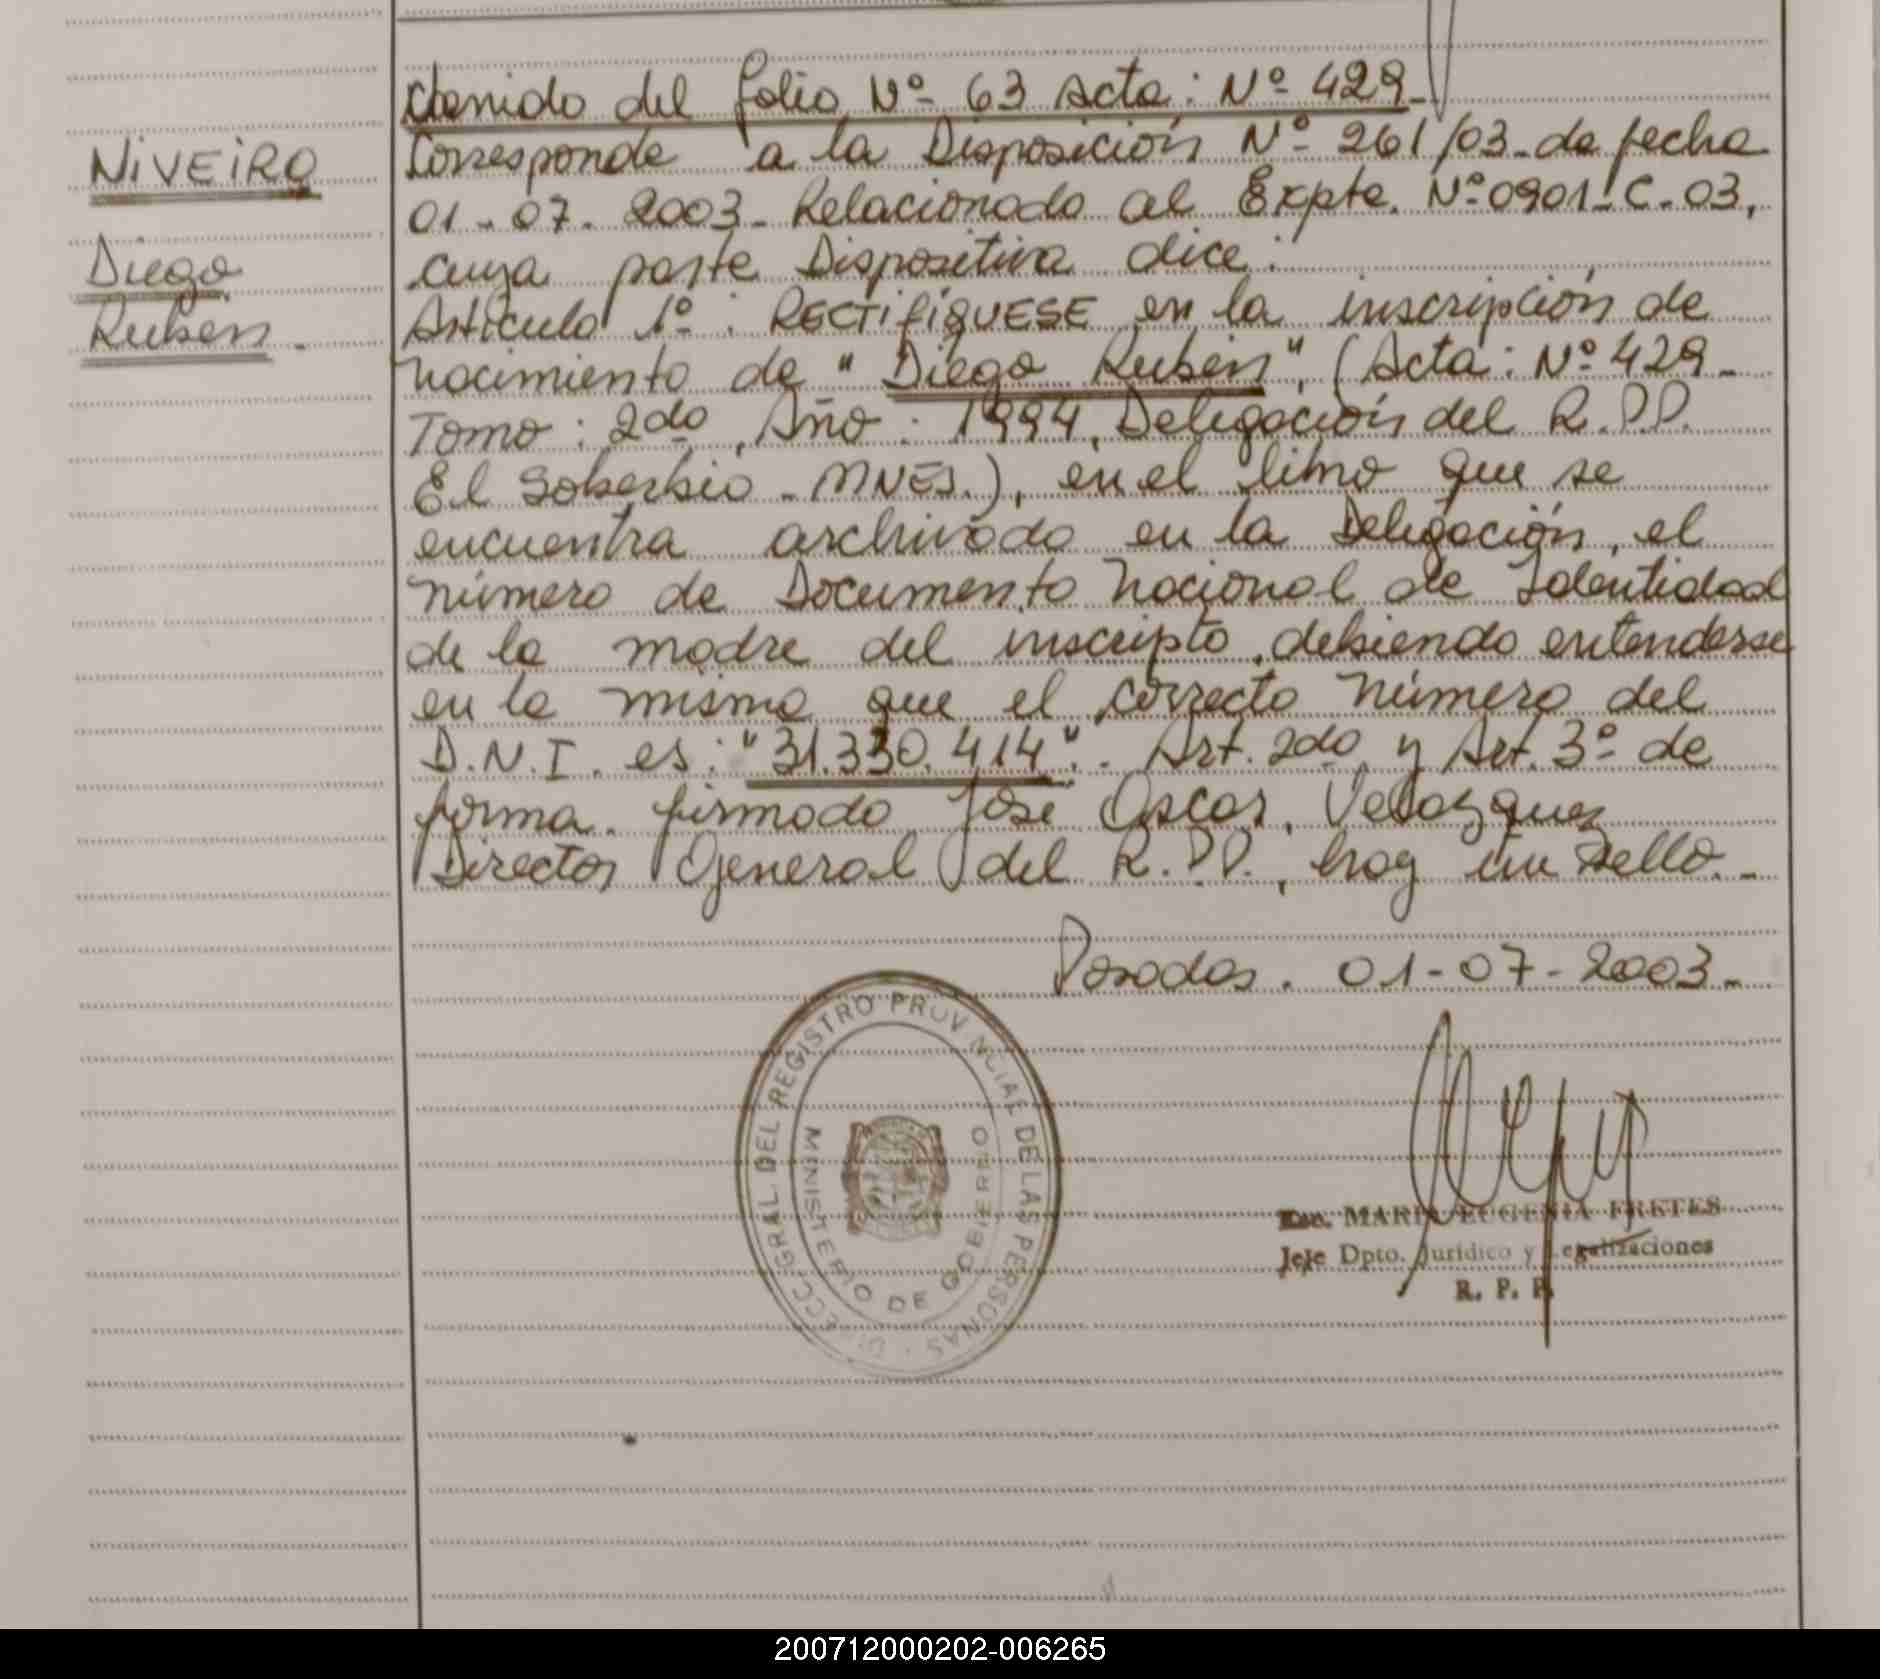 NiVEiRO
Diego
Ruben.-
Atenido del folio Nº- 63 Acta: Nº- 429.-
Corresponde a la Disposición Nº- 261/03- de fecha
01-07-2003- Relacionado al Expte. Nº-0901-C-03,
cuya parte Dispositiva dice:
Artículo 1º: RECTIFÍQUESE en la inscripción de
nacimiento de "Diego Rubén", (Acta: Nº 429-
Tomo: 2do, Año: 1994, Delegación del R.P.P.
El Soberbio - MNES.), en el libro que se
encuentra archivado en la Delegación, el
número de Documento Nacional de Identidad
de la madre del inscripto, debiendo entenderse
en la misma que el correcto número del
D.N.I. es: "31.330.414". Art. 2do y Art. 3º de
forma. firmado José Oscar, Velazquez
Director General del R.P.P., hay un Sello.-
Posadas. 01-07-2003-
DIRECC. GRAL. DEL REGISTRO PROVINCIAL DE LAS PERSONAS
MINISTERIO DE GOBIERNO
Esc. MARIA EUGENIA FRETES
Jefe Dpto. Jurídico y Legalizaciones
R. P. P.
200712000202-006265